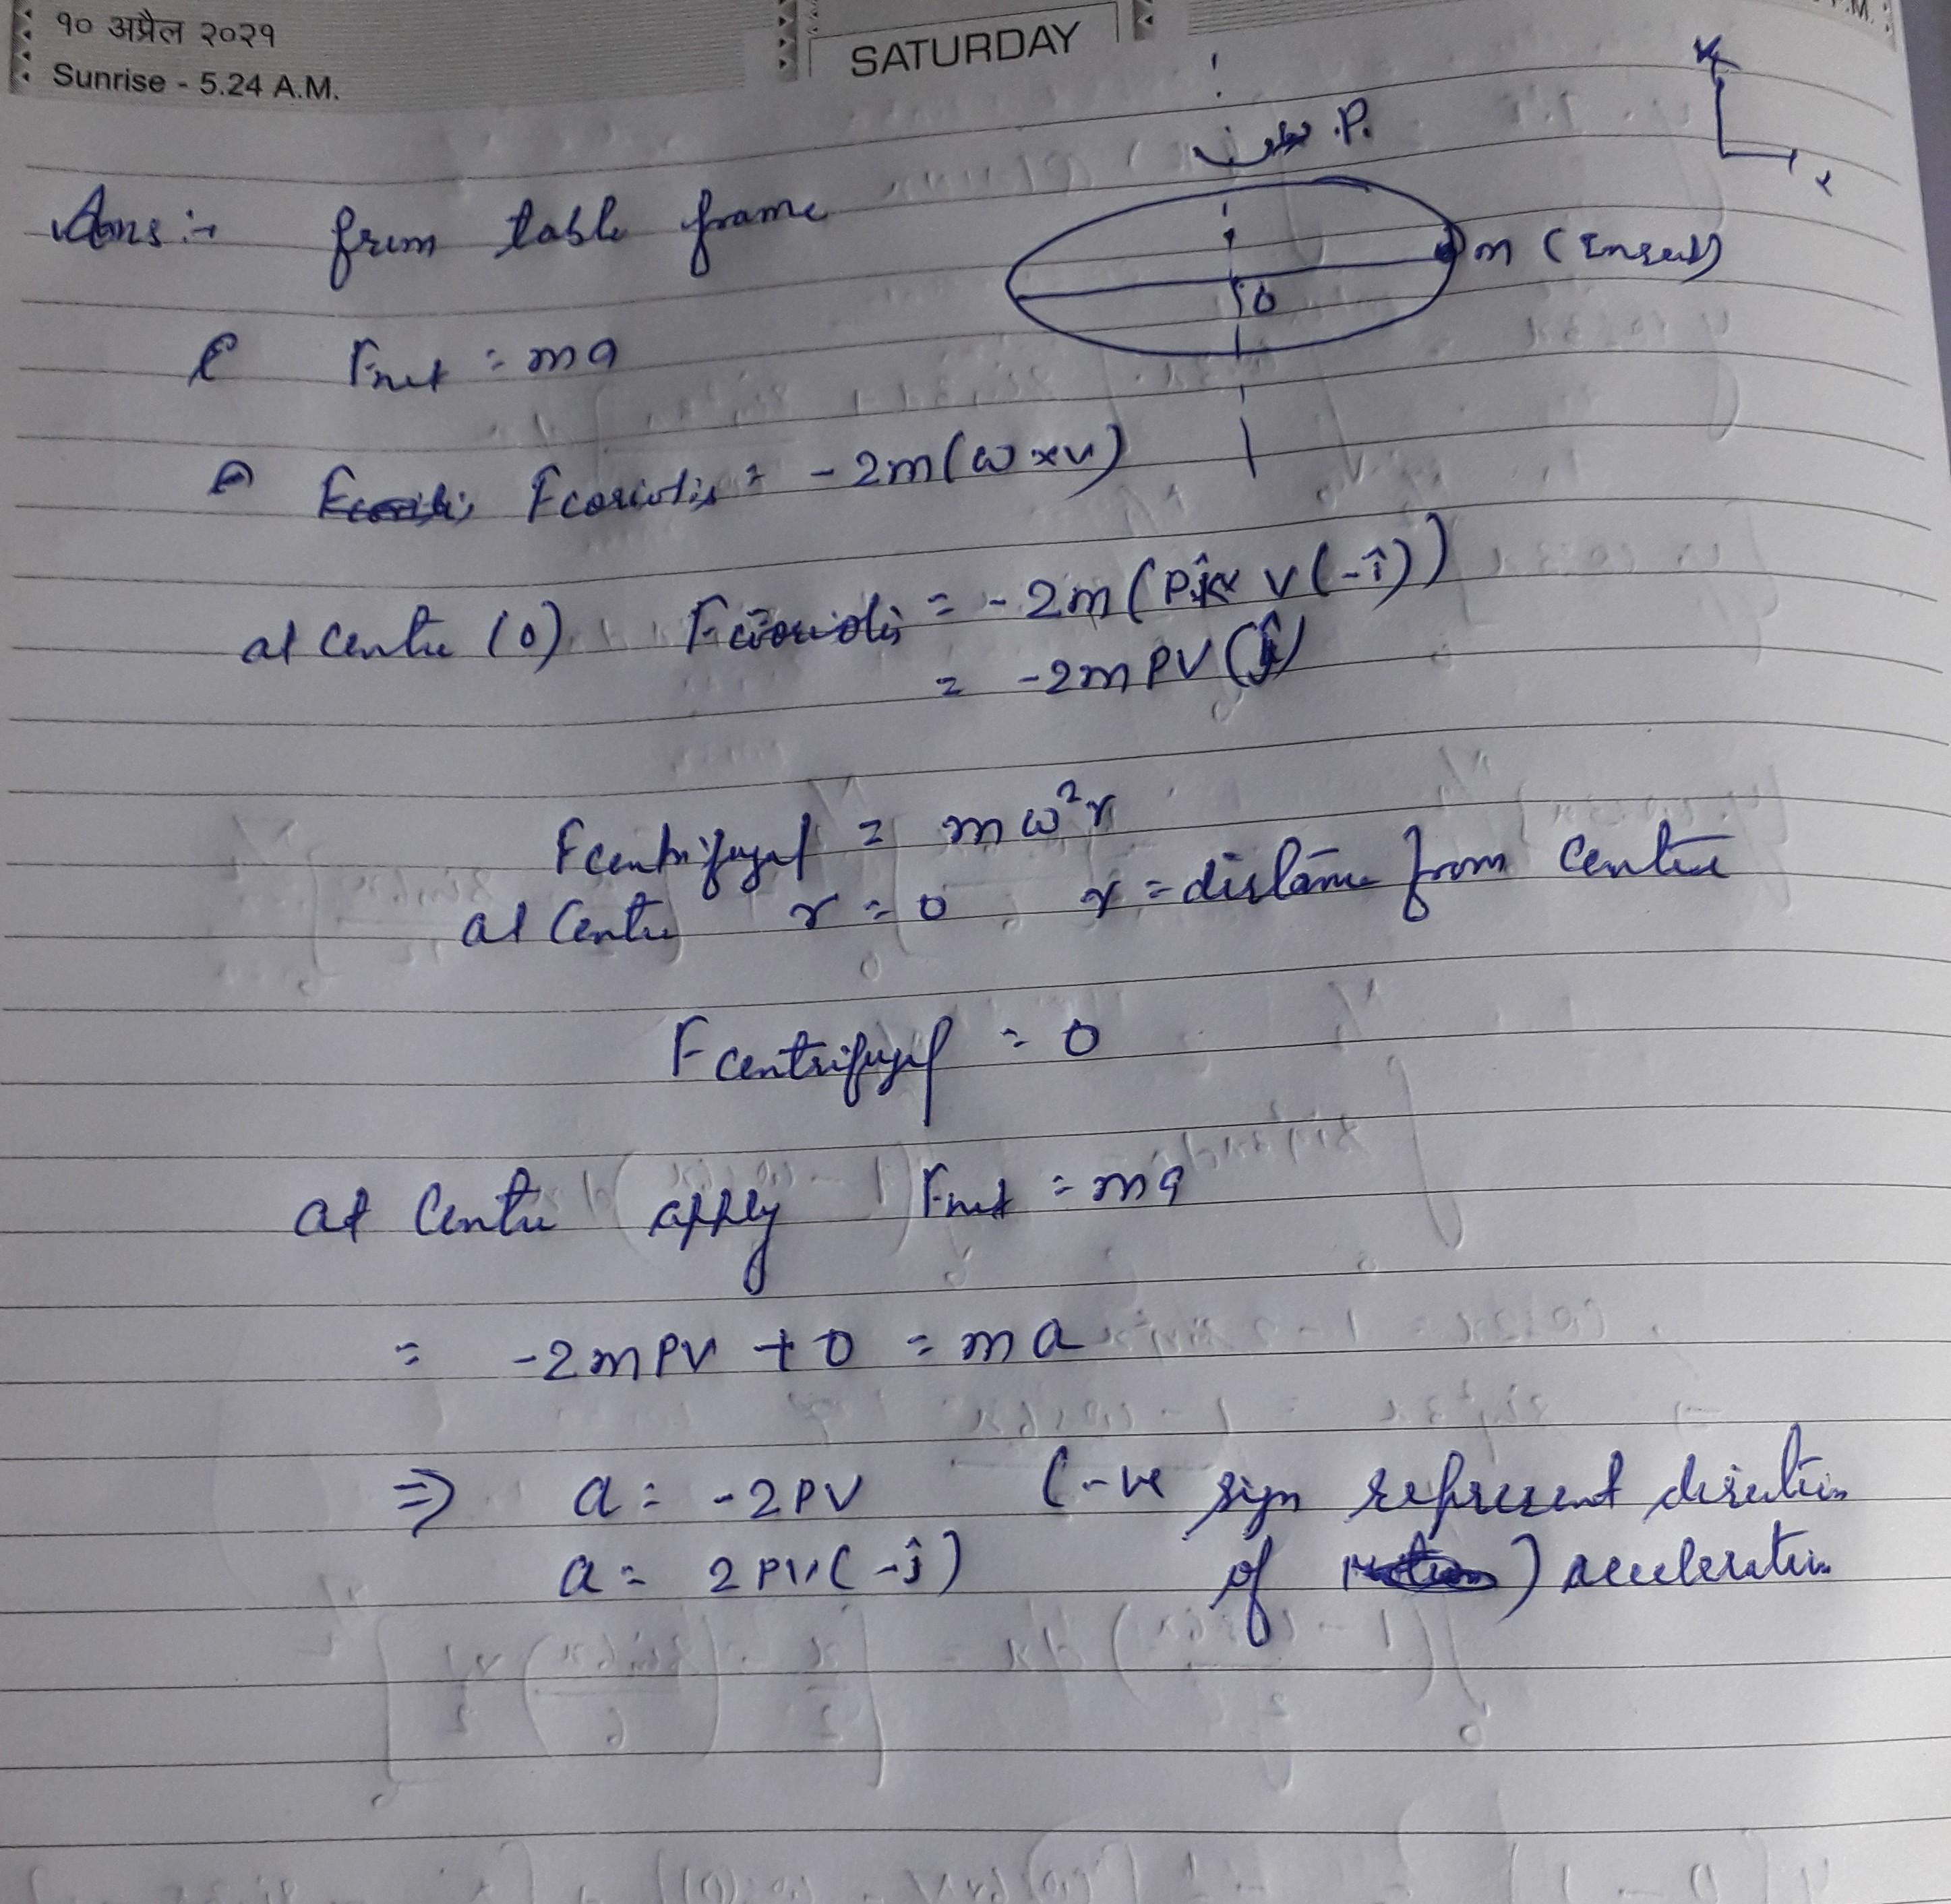 १० अप्रैल २०२१
Sunrise - 5.24 A.M.
SATURDAY
P.M.
P.
x
Ans :- from table frame
m (Insect)
O
Fnet = ma
Fcoriolis = -2m(ω×v)
at Centre (O) Fcoriolis = -2m(Pk̂ × v(-î))
= -2mPV(ĵ)
Fcentrifugal = mω²r
at Centre r = 0 r = distance from Centre
Fcentrifugal = 0
at Centre apply Fnet = ma
= -2mPV + 0 = ma
⇒ a = -2PV (-ve sign represent direction
a = 2PV(-ĵ) of ) acceleration